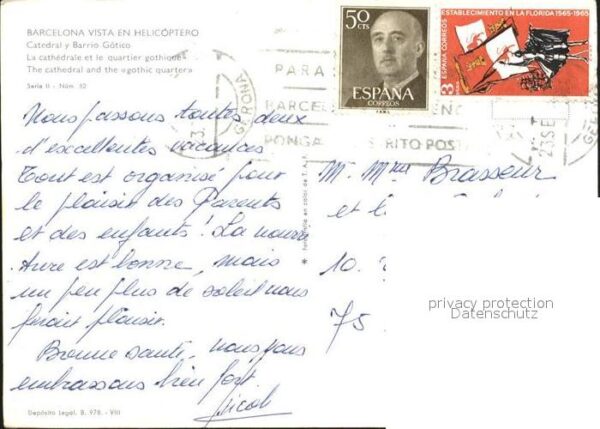 BARCELONA VISTA EN HELICÓPTERO
Catedral y Barrio Gótico
La cathédrale et le quartier gothique
The cathedral and the «gothic quarter»
Serie II - Núm. 52
50 CTS
ESPAÑA
CORREOS
ESTABLECIMIENTO EN LA FLORIDA 1565-1965
ESPAÑA CORREOS
3
PARA
BARCEL
PONGA
RITO POST
GERONA
23 SE
Nous passons toutes deux
d'excellentes vacances
Tout est organisé pour
le plaisir des Parents
et des enfants! La nourri
ture est bonne, mais
un peu plus de soleil nous
ferait plaisir.
Bonne santé, nous vous
embrassons bien fort
Nicole
Mr Mme Brasseur
et
10.
75
privacy protection
Datenschutz
Depósito Legal. B. 978. - VIII